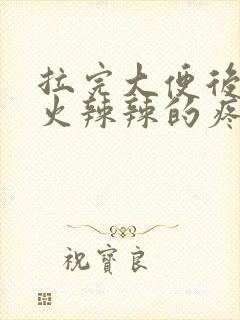 拉完大便後
火辣辣的疼
祝寶良